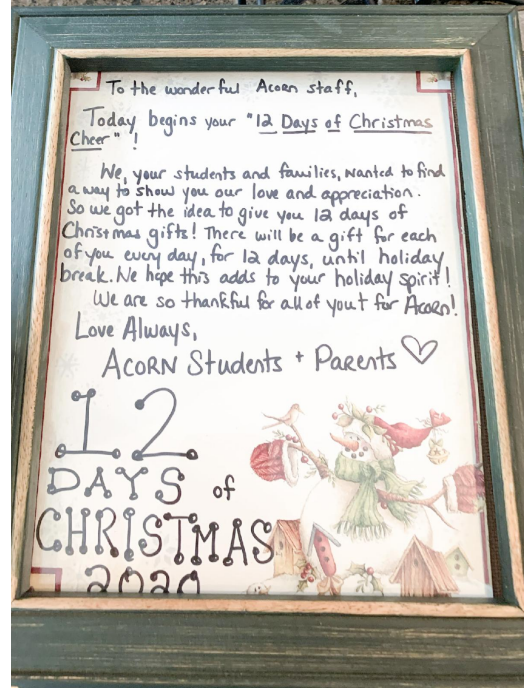 To the wonderful Acorn staff,
Today begins your "12 Days of Christmas
Cheer"!
We, your students and families, wanted to find
a way to show you our love and appreciation.
So we got the idea to give you 12 days of
Christmas gifts! There will be a gift for each
of you every day, for 12 days, until holiday
break. We hope this adds to your holiday spirit!
We are so thankful for all of you + for Acorn!
Love Always,
ACORN Students + Parents
12
DAYS of
CHRISTMAS
2020